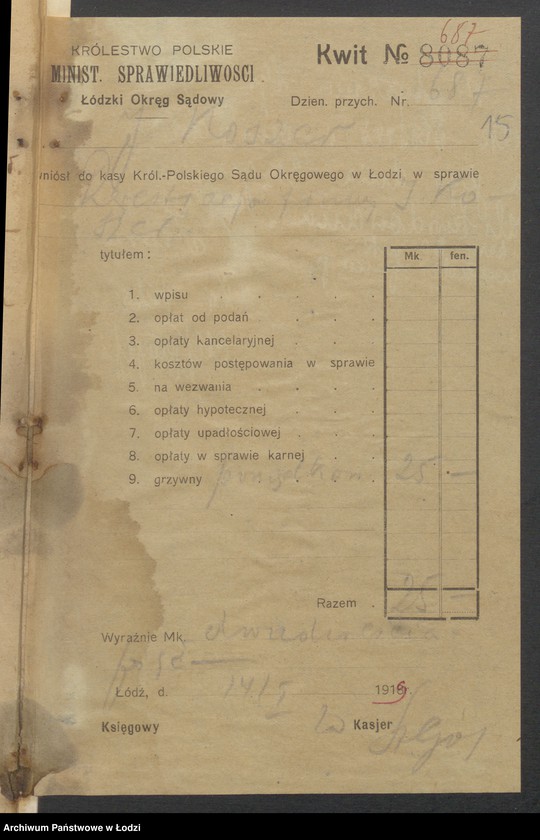 687
KRÓLESTWO POLSKIE
MINIST. SPRAWIEDLIWOSCI.
Łódzki Okręg Sądowy
Kwit № 8087
Dzien. przych. Nr. 687
15
wniósł do kasy Król.-Polskiego Sądu Okręgowego w Łodzi, w sprawie
tytułem:
Mk. fen.
1. wpisu
2. opłat od podań
3. opłaty kancelaryjnej
4. kosztów postępowania w sprawie
5. na wezwania
6. opłaty hypotecznej
7. opłaty upadłościowej
8. opłaty w sprawie karnej
9. grzywny 25 —
Razem 25 —
Wyraźnie Mk. dwadzieścia
pięć
Łódź, d. 14/5 1919
Księgowy Kasjer
Archiwum Państwowe w Łodzi